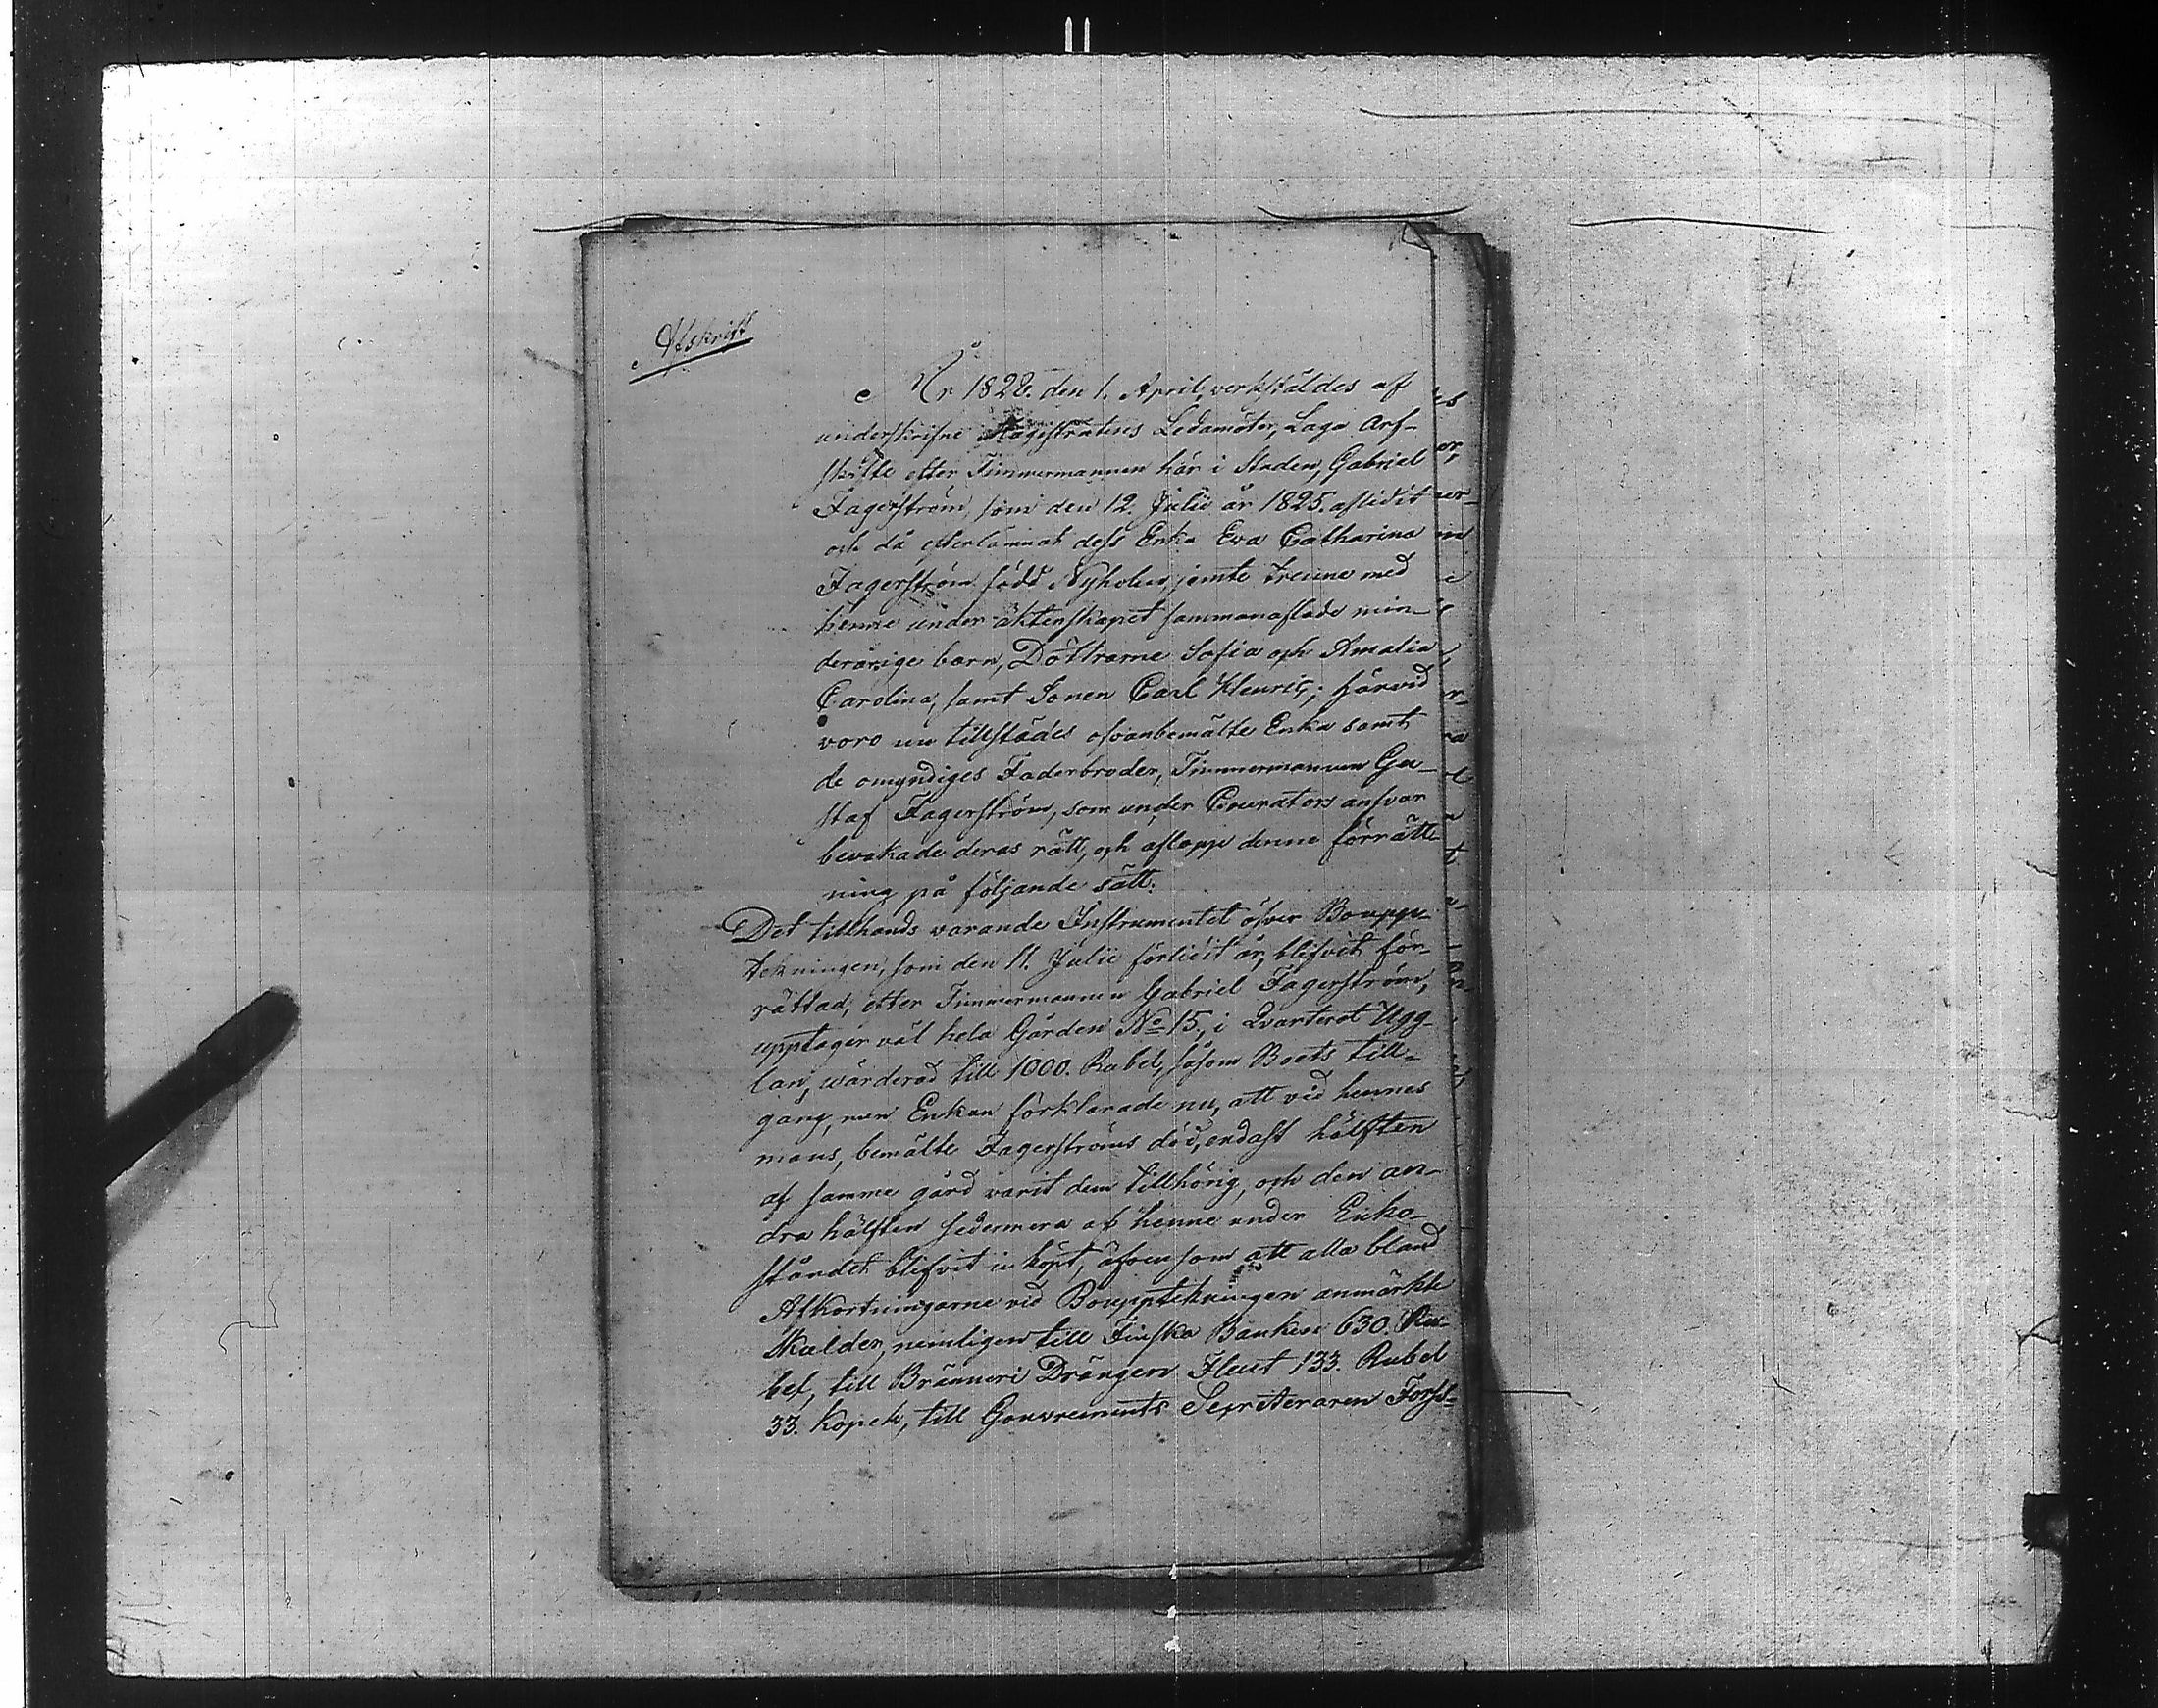 Afskrift
År 1828. den 1. April, verkstäldes af
underskrifne Magistratens Ledamöter, Laga Arf-
skifte efter Timmermannen här i Staden, Gabriel
Fagerström, som den 12. Julii år 1825. aflidit
och då efterlämnat dess Enka Eva Catharina
Fagerström född Nyholm, jemte trenne med
henne under äktenskapet sammanaflade min-
derårige barn, Döttrarne Sofia och Amalia
Carolina, samt Sonen Carl Henric; härvid
voro nu tillstädes ofvanbemälte Enka samt
de omyndiges Faderbroder, Timmermannen Gu-
staf Fagerström, som under Curators ansvar
bevakade deras rätt, och aflopp denne förrätt-
ning på följande sätt.
Det tillhands varande Instrumentet öfver Bouppe-
tekningen, som den 11. Julii förlidit år, blifvit för-
rättad, efter Timmermannen Gabriel Fagerström,
upptager väl hela Gården No 15, i Qvarteret Ugg-
lan, wärderad till 1000. Rubel, såsom Boets till-
gång, men Enkan förklarade nu, att vid hennes
mans, bemälte Fagerströms död, endast hälften
af samme gård varit dem tillhörig, och den an-
dra hälften sedermera af henne under Enko-
ståndet blifvit inköpt, äfvensom att alla bland
Afkortningarne vid Bouppteckningen anmärkte
Skulder, nemligen till Finska Banken 630. Ru-
bel, till Bränneri Drängen Fleut 133. Rubel
33. Kopek, till Gouvrements Secreteraren Forss-